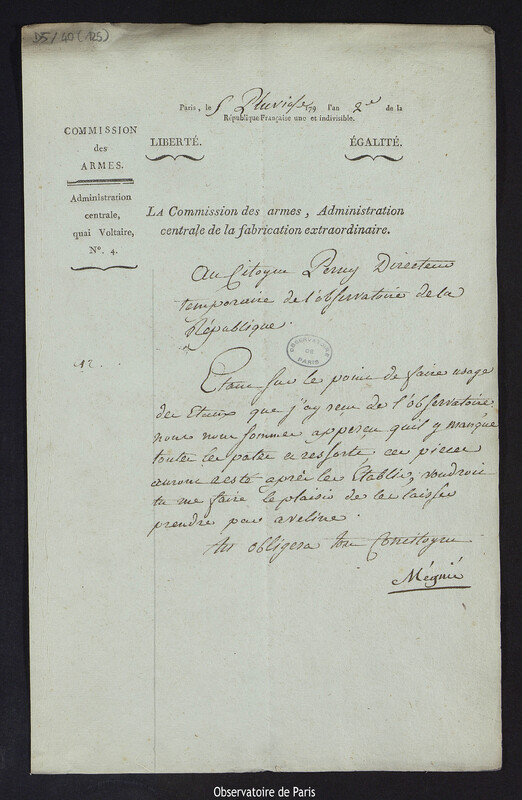 D5/40 (125)
Paris, le 5 Pluviose 179 l'an 2e de la
République Française une et indivisible.
COMMISSION
des
ARMES.
Administration
centrale,
quai Voltaire,
No. 4.
LIBERTÉ. ÉGALITÉ.
LA Commission des armes, Administration
centrale de la fabrication extraordinaire.
Au Citoyen Perny Directeur
temporaire de l'observatoire de la
République.
OBSERVATOIRE
DE
PARIS
Etant sur le point de faire usage
des Etaux que j'ay reçu de l'observatoire
nous nous sommes apperçu qu'il y manque
toutes les pates et ressorts, ces pieces
auront resté après les Etablis, voudrois
tu me faire le plaisir de les laisser
prendre par aveline.
tu obligera ton Concitoyen
Mégnié
Observatoire de Paris